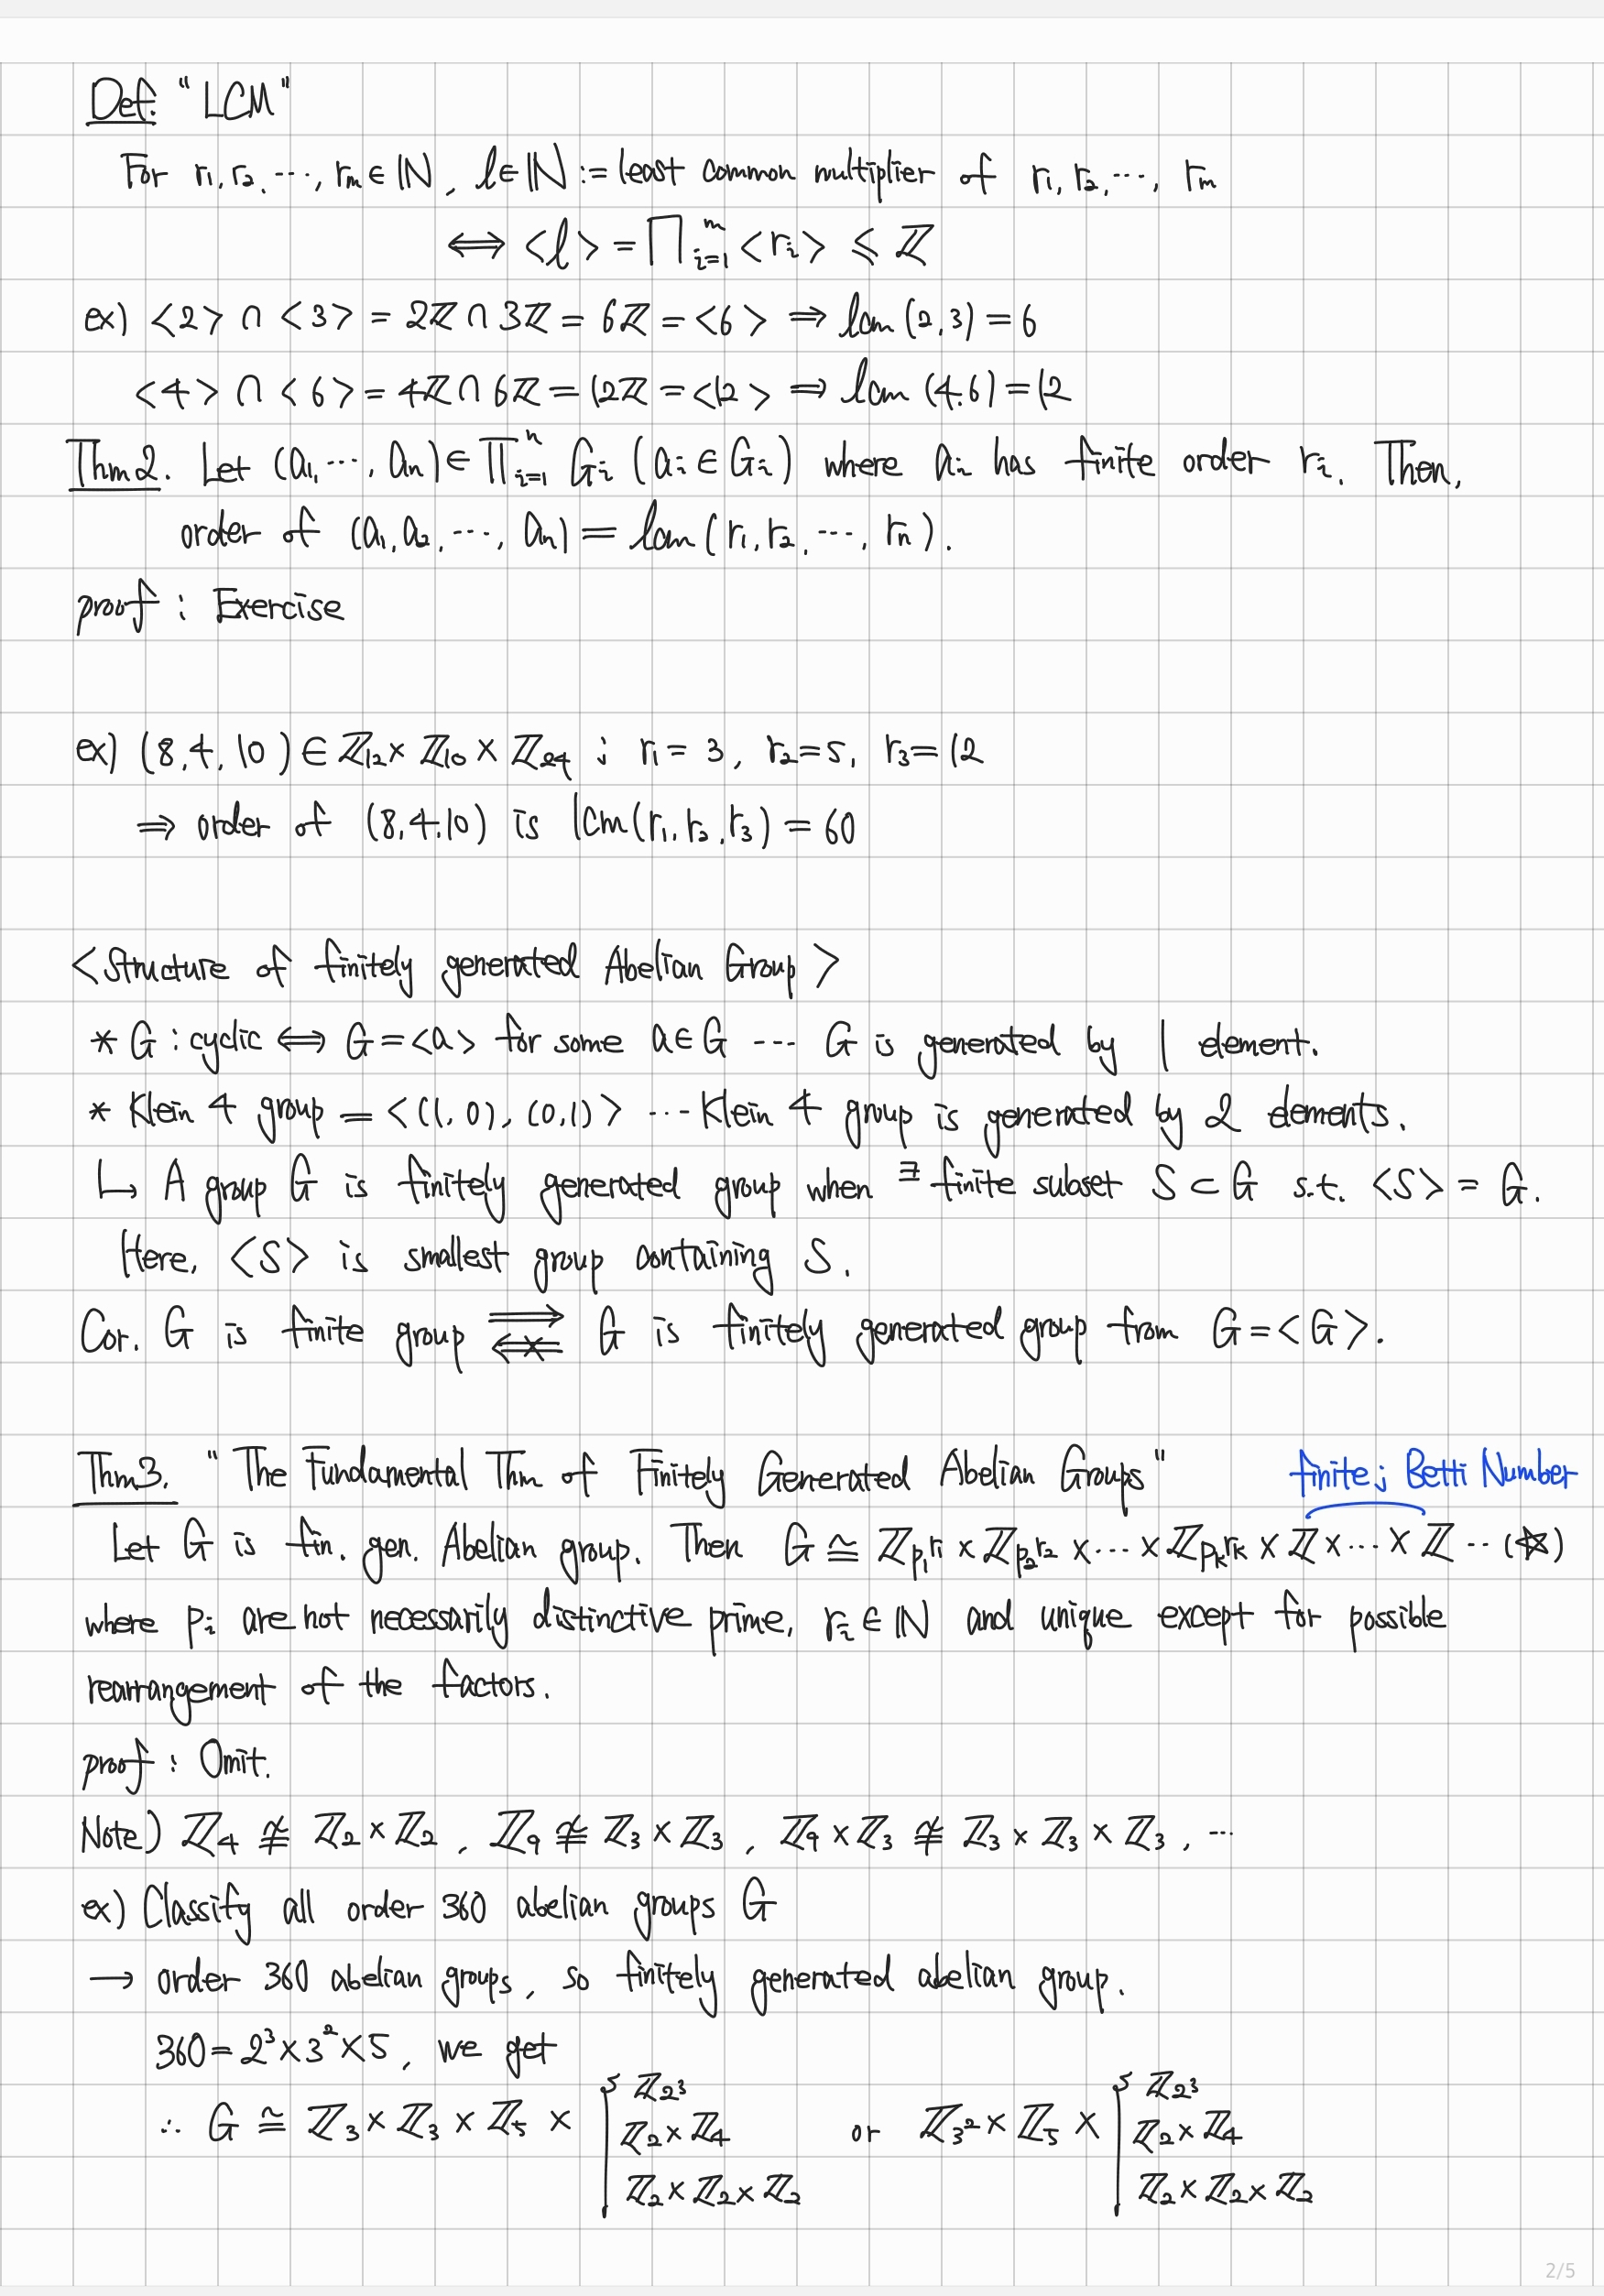 Def. "LCM"
For r₁, r₂, ⋯, rₘ ∈ ℕ, l ∈ ℕ := least common multiplier of r₁, r₂, ⋯, rₘ
⟺ <l> = ∏ᵢ₌₁ᵐ <rᵢ> ≤ ℤ
ex) <2> ∩ <3> = 2ℤ ∩ 3ℤ = 6ℤ = <6> ⇒ lcm (2,3) = 6
<4> ∩ <6> = 4ℤ ∩ 6ℤ = 12ℤ = <12> ⇒ lcm (4,6) = 12
Thm2. Let (a₁, ⋯, aₙ) ∈ ∏ᵢ₌₁ⁿ Gᵢ (aᵢ ∈ Gᵢ) where aᵢ has finite order rᵢ. Then,
order of (a₁, a₂, ⋯, aₙ) = lcm (r₁, r₂, ⋯, rₙ).
proof : Exercise
ex) (8, 4, 10) ∈ ℤ₁₂ × ℤ₁₀ × ℤ₂₄ ; r₁ = 3, r₂ = 5, r₃ = 12
⇒ order of (8, 4, 10) is lcm(r₁, r₂, r₃) = 60
<Structure of finitely generated Abelian Group>
* G : cyclic ⟺ G = <a> for some a ∈ G --- G is generated by 1 element.
* Klein 4 group = <(1, 0), (0, 1)> --- Klein 4 group is generated by 2 elements.
↳ A group G is finitely generated group when ∃ finite subset S ⊂ G s.t. <S> = G.
Here, <S> is smallest group containing S.
Cor. G is finite group ⟹ ⟸̸ G is finitely generated group from G = <G>.
Thm3. "The Fundamental Thm of Finitely Generated Abelian Groups" finite ; Betti Number
Let G is fin. gen. Abelian group. Then G ≅ ℤ_{p₁^{r₁}} × ℤ_{p₂^{r₂}} × ⋯ × ℤ_{pₖ^{rₖ}} × ℤ × ⋯ × ℤ -- (☆)
where pᵢ are not necessarily distinctive prime, rᵢ ∈ ℕ and unique except for possible
rearrangement of the factors.
proof : Omit.
Note) ℤ₄ ≇ ℤ₂ × ℤ₂, ℤ₉ ≇ ℤ₃ × ℤ₃, ℤ₉ × ℤ₃ ≇ ℤ₃ × ℤ₃ × ℤ₃, ⋯
ex) Classify all order 360 abelian groups G
→ order 360 abelian groups, so finitely generated abelian group.
360 = 2³ × 3² × 5, we get
∴ G ≅ ℤ₃ × ℤ₃ × ℤ₅ × { ℤ_{2³} / ℤ₂ × ℤ₄ / ℤ₂ × ℤ₂ × ℤ₂ or ℤ_{3²} × ℤ₅ × { ℤ_{2³} / ℤ₂ × ℤ₄ / ℤ₂ × ℤ₂ × ℤ₂
2/5